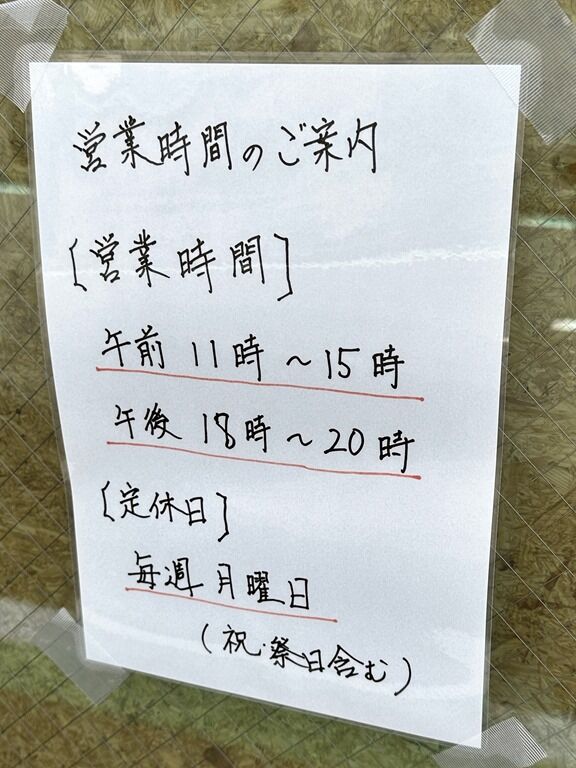 営業時間のご案内
[営業時間]
午前 11時～15時
午後 18時～20時
[定休日]
毎週月曜日
(祝・祭日含む)